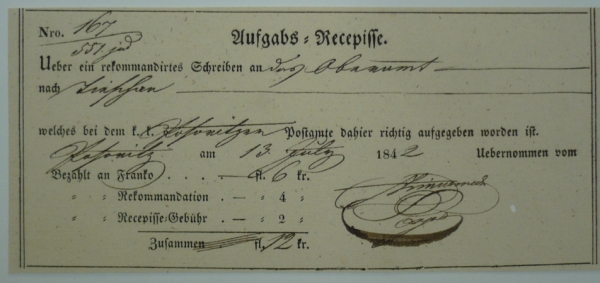 Nro. 167
551 jud
Aufgabs = Recepisse.
Ueber ein rekommandirtes Schreiben an das Oberamt
nach
welches bei dem k. k. Postamte dahier richtig aufgegeben worden ist.
am 13 July 1842 Uebernommen vom
Bezahlt an Franko . . . . — fl. 6 kr.
„ „ Rekommandation . — „ 4 „
„ „ Recepisse=Gebühr . — „ 2 „
Zusammen fl. 12 kr.